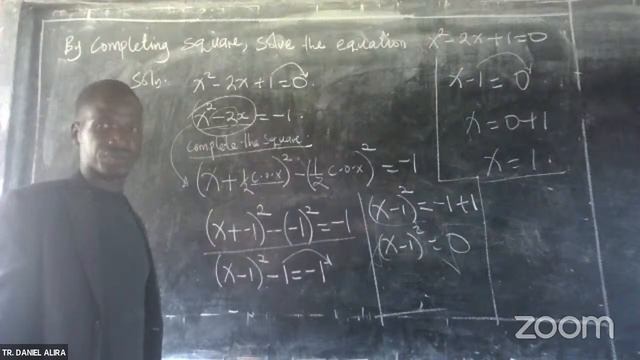 By completing square, solve the equation x² - 2x + 1 = 0
Soln.
x² - 2x + 1 = 0.
x² - 2x = -1.
Complete the square.
(x + ½ c.o.x)² - (½ c.o.x)² = -1
(x + -1)² - (-1)² = -1
(x - 1)² - 1 = -1
(x - 1)² = -1 + 1
(x - 1)² = 0
x - 1 = 0
x = 0 + 1
x = 1.
zoom
TR. DANIEL ALIRA